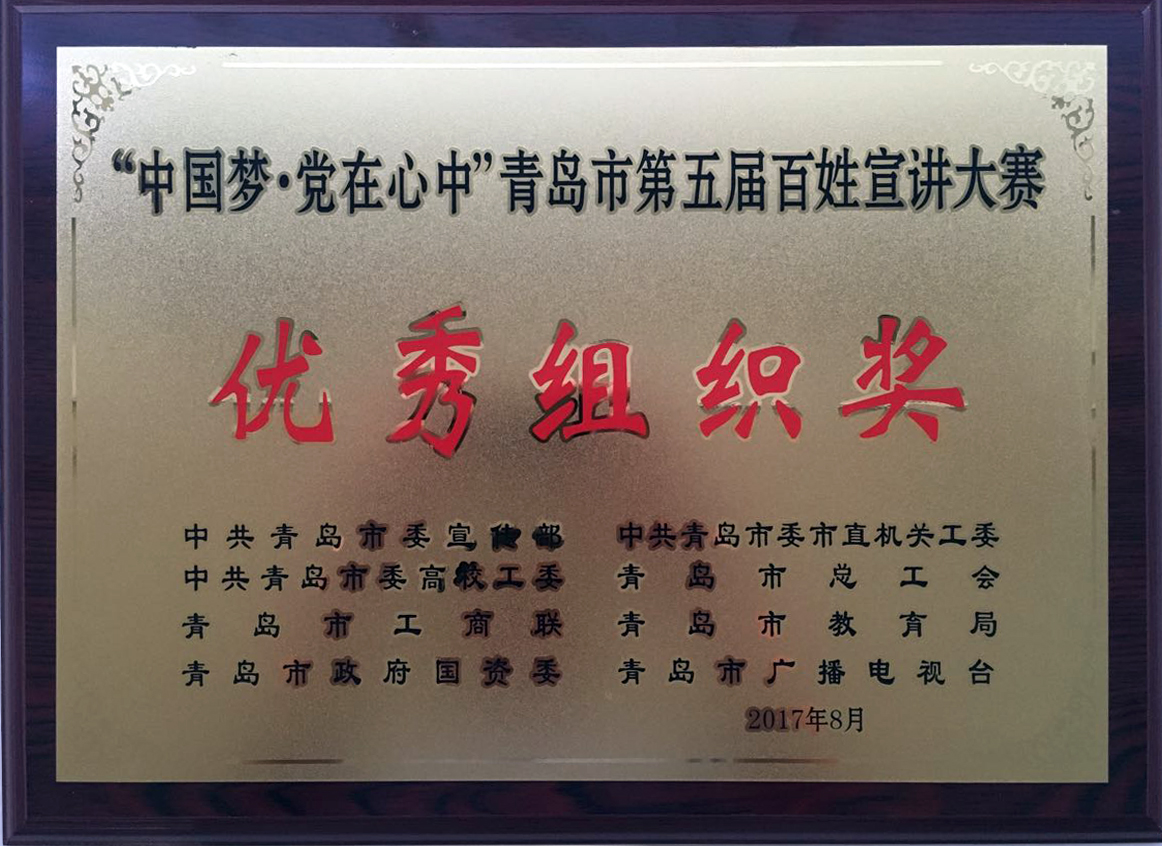 “中国梦·党在心中”青岛市第五届百姓宣讲大赛
优秀组织奖
中共青岛市委宣传部 中共青岛市委市直机关工委
中共青岛市委高校工委 青岛市总工会
青岛市工商联 青岛市教育局
青岛市政府国资委 青岛市广播电视台
2017年8月